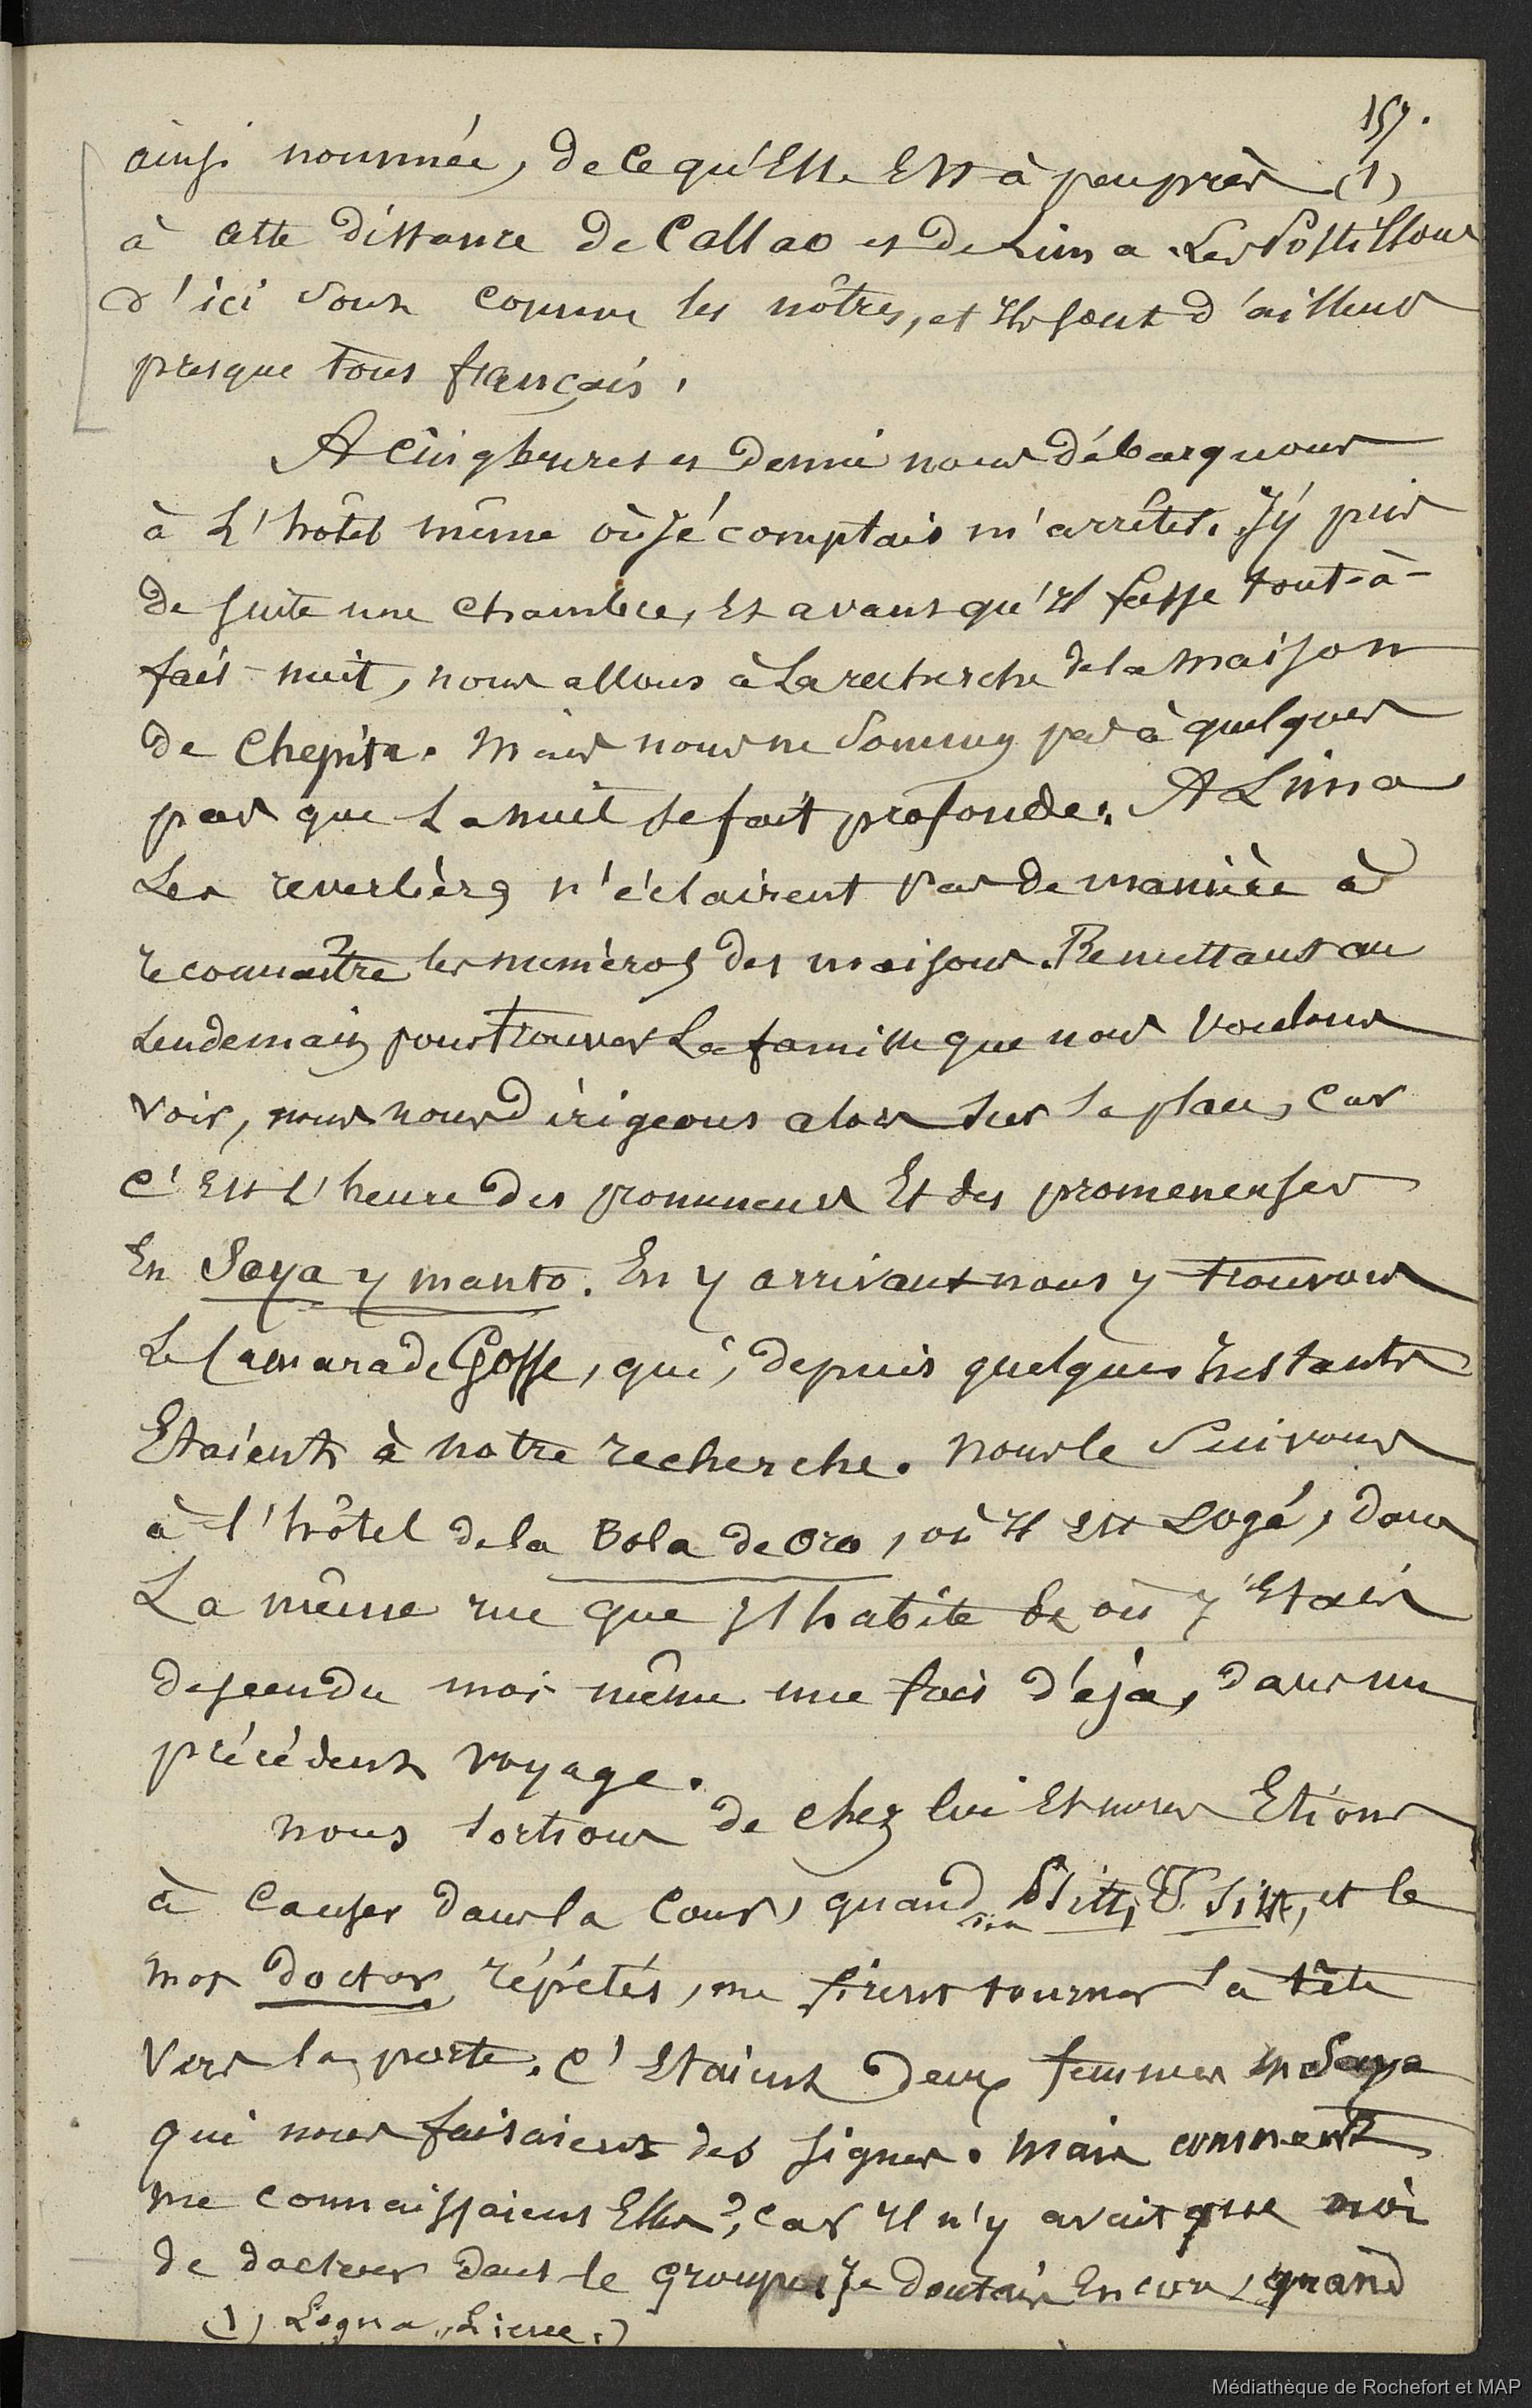 157.
ainsi nommée, de ce qu'Elle Est à peu près (1)
à cette distance de Callao et de Lima. Les Postillons
d'ici sont comme les nôtres, et Ils sont d'ailleurs
presque tous français.
A cinq heures et demie nous débarquons
à L'hôtel même où Je comptais m'arrêter. J'y pris
de suite une chambre, Et avant qu'Il fasse tout-à-
fait-nuit, nous allons à La recherche de la maison
de Chepita. Mais nous ne sommes pas à quelques
pas que La nuit se fait profonde. A Lima
Les reverbères n'éclairent pas de manière à
reconnaître les numéros des maisons. Remettant au
Lendemain pour trouver La famille que nous voulons
voir, nous nous dirigeons alors sur la place, car
c'Est L'heure des promeneurs Et des promeneuses
En Saya y manto. En y arrivant nous y trouvons
Le Camarade Gosse, qui, depuis quelques Instants
Etaient à notre recherche. Nous le suivons
à l'hôtel de la Bola de Oro, où Il Est Logé, dans
La même rue que J'habite et où J'Etais
descendu moi même une fois déja, dans un
précédent voyage.
Nous sortions de chez lui Et nous Etions
à causer dans la cour, quand Psitt, Psitt, et le
mot doctor, répétés, me firent tourner la tête
vers la porte. C'Etaient deux femmes En Saya
qui nous faisaient des signes. Mais comment
me connaissaient Elles?, car Il n'y avait que moi
de docteur dans le groupe. Je doutais Encore, quand
(1) Legua, Lieue.)
Médiathèque de Rochefort et MAP